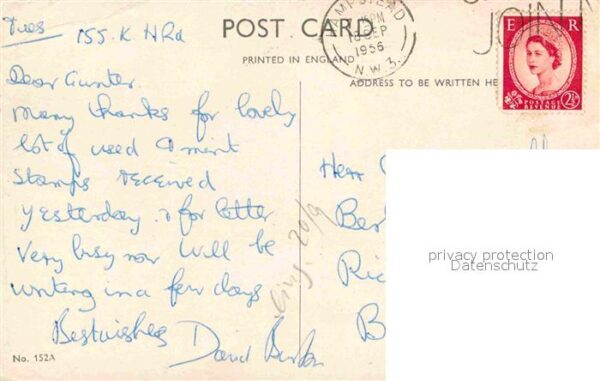 Tues 155. K H Rd
POST CARD
PRINTED IN ENGLAND
ADDRESS TO BE WRITTEN HE
Dear Gunter.
Many thanks for lovely
lot of used & mint
stamps received
yesterday & for letter
Very busy now will be
writing in a few days
Best wishes
David
No. 152A
eing. 20/9
Herr
Ber
Ric
B
MPSTEAD
PM
SEP
1956
N.W.3.
JOIN
E R
POSTAGE
REVENUE
2½
privacy protection
Datenschutz